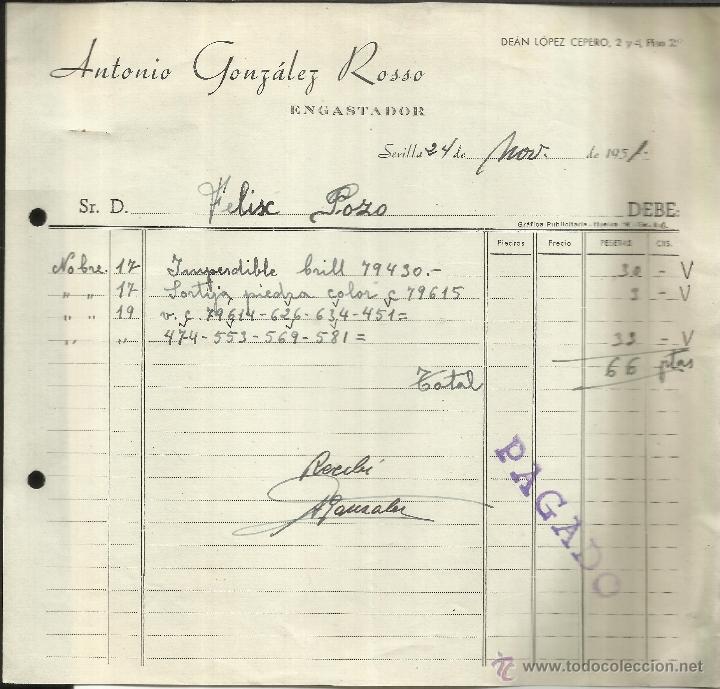 DEÁN LÓPEZ CEPERO, 2 y 4, Piso 2º
Antonio González Rosso
ENGASTADOR
Sevilla 24 de Nov. de 1951-
Sr. D. Felix Pozo DEBE:
Gráfica Publicitaria
Piedras Precio PESETAS CTS.
Nobre. 17 Imperdible brill 79430.- 30 - V
" " 17 Sortija piedra color ç 79615 3 - V
" " 19 v. ç 79614-626-634-451=
" " 474-553-569-581= 33 - V
Total 66 ptas
Recibí
AGonzalez
PAGADO
tc www.todocoleccion.net